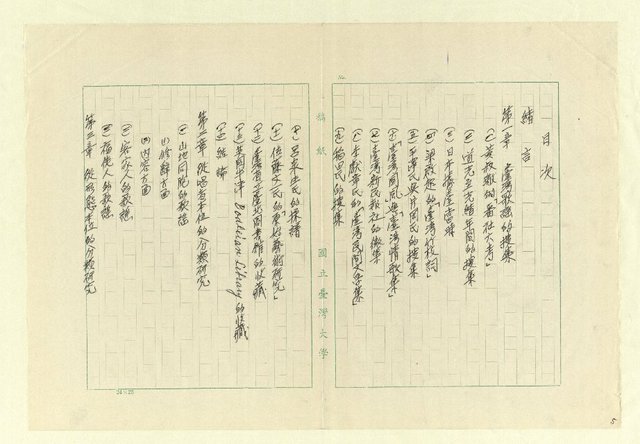 No.
目次
緒言
第一章 臺灣歌謠的搜集
(一) 黃叔璥的「番社大考」
(二) 道光至光緒年間的搜集
(三) 日本據臺當時
(四) 梁啟超的「臺灣竹枝詞」
(五) 平澤氏與片岡氏的搜集
(六) 「臺灣國風」與「臺灣情歌集」
(七) 臺灣新民報社的徵集
(八) 李獻章氏的「臺灣民間文學集」
(九) 稻田氏的搜集
(十) 呂泉生氏的採譜
(十一) 佐藤文氏的「原始藝術研究」
(十二) 臺灣省立臺北圖書館的收藏
(十三) 英國牛津 Bodleian Library 的收藏
(十四) 總結
第二章 從唱者本位的分類研究
(一) 山地同胞的歌謠
(1) 修辭方面
(2) 內容方面
(二) 客家人的歌謠
(三) 福佬人的歌謠
第三章 從形態本位的分類研究
稿紙
國立臺灣大學
24×25
5